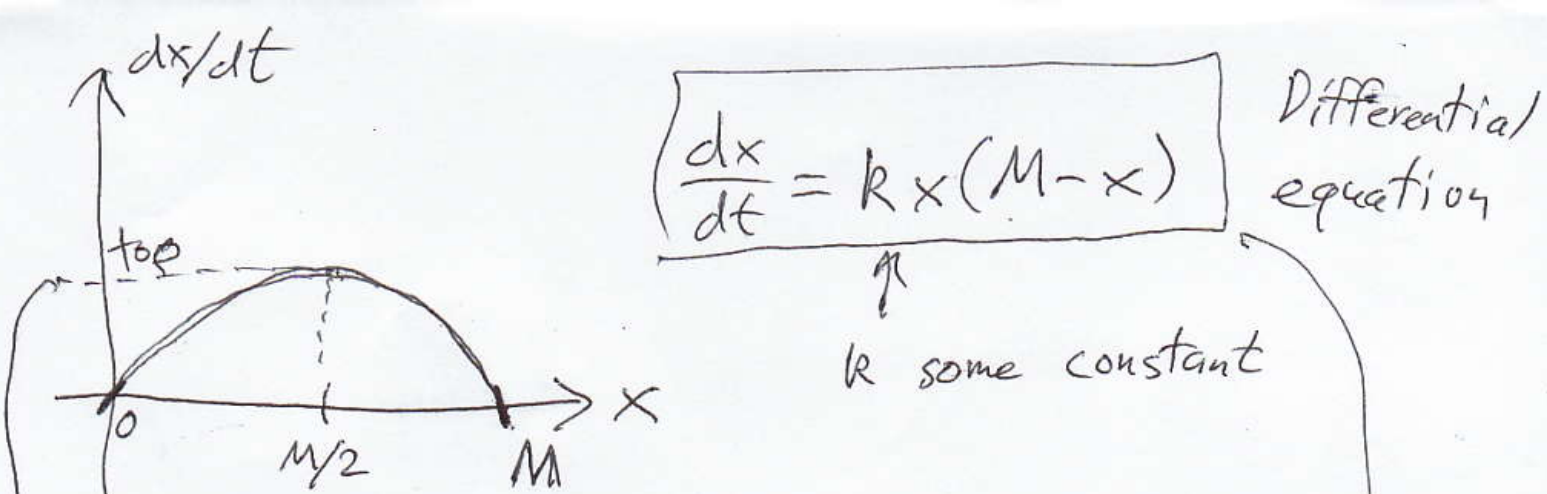 dx/dt
top
0
M/2
M
x
dx/dt = k x (M - x)
Differential
equation
k some constant